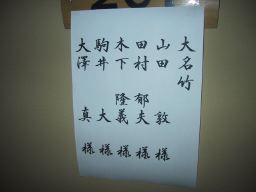 大名竹
山田 敦 様
田村 郁夫 様
木下 隆義 様
駒井 大 様
大澤 真 様